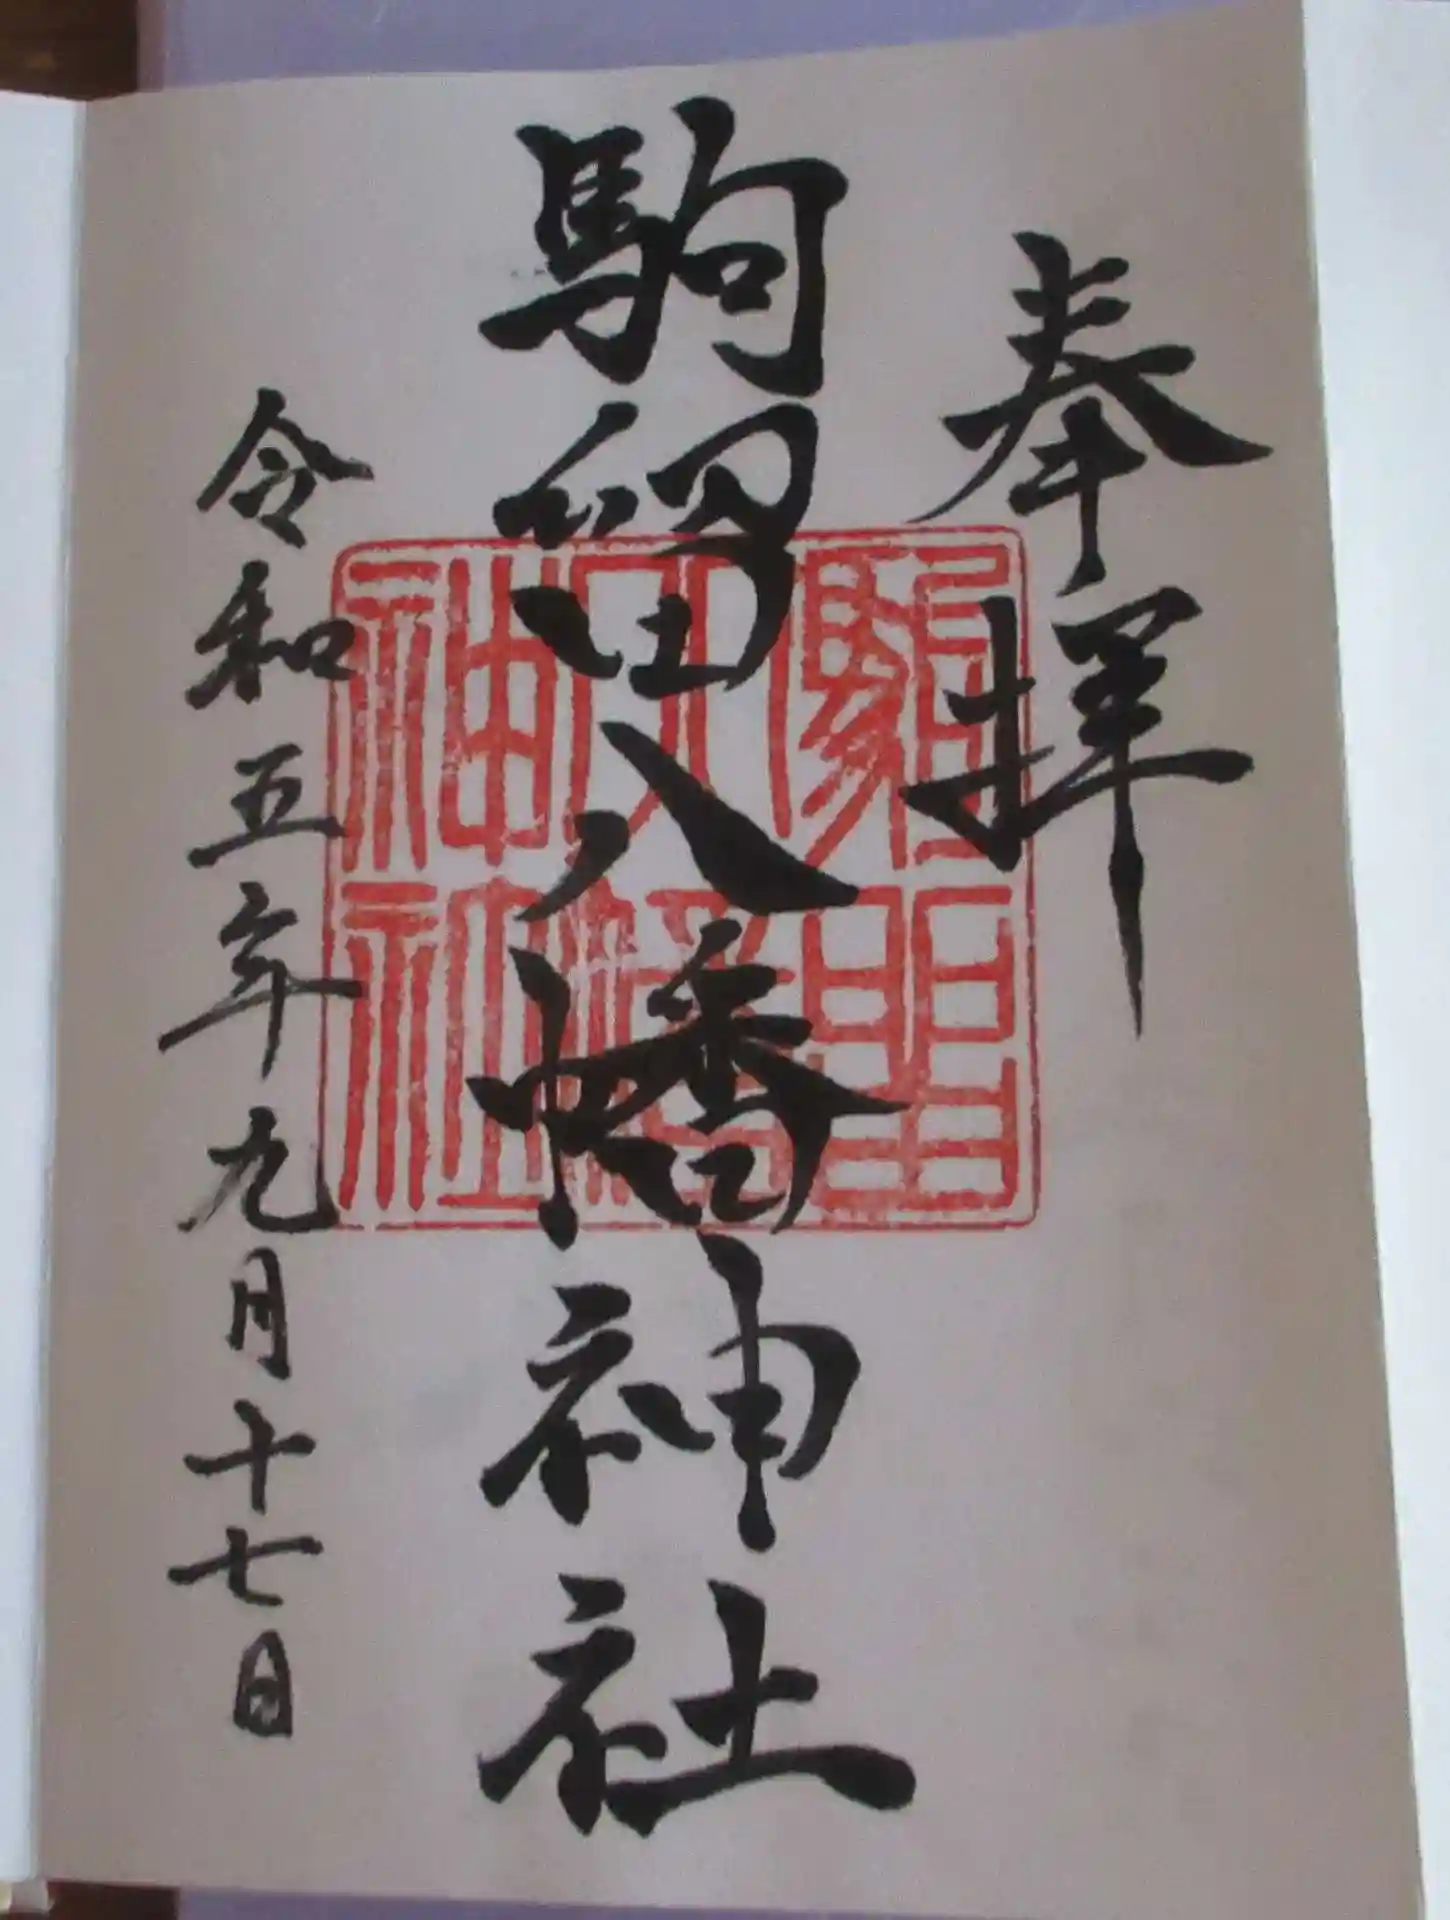 奉拝
駒留八幡神社
令和五年九月十七日
駒留八幡神社